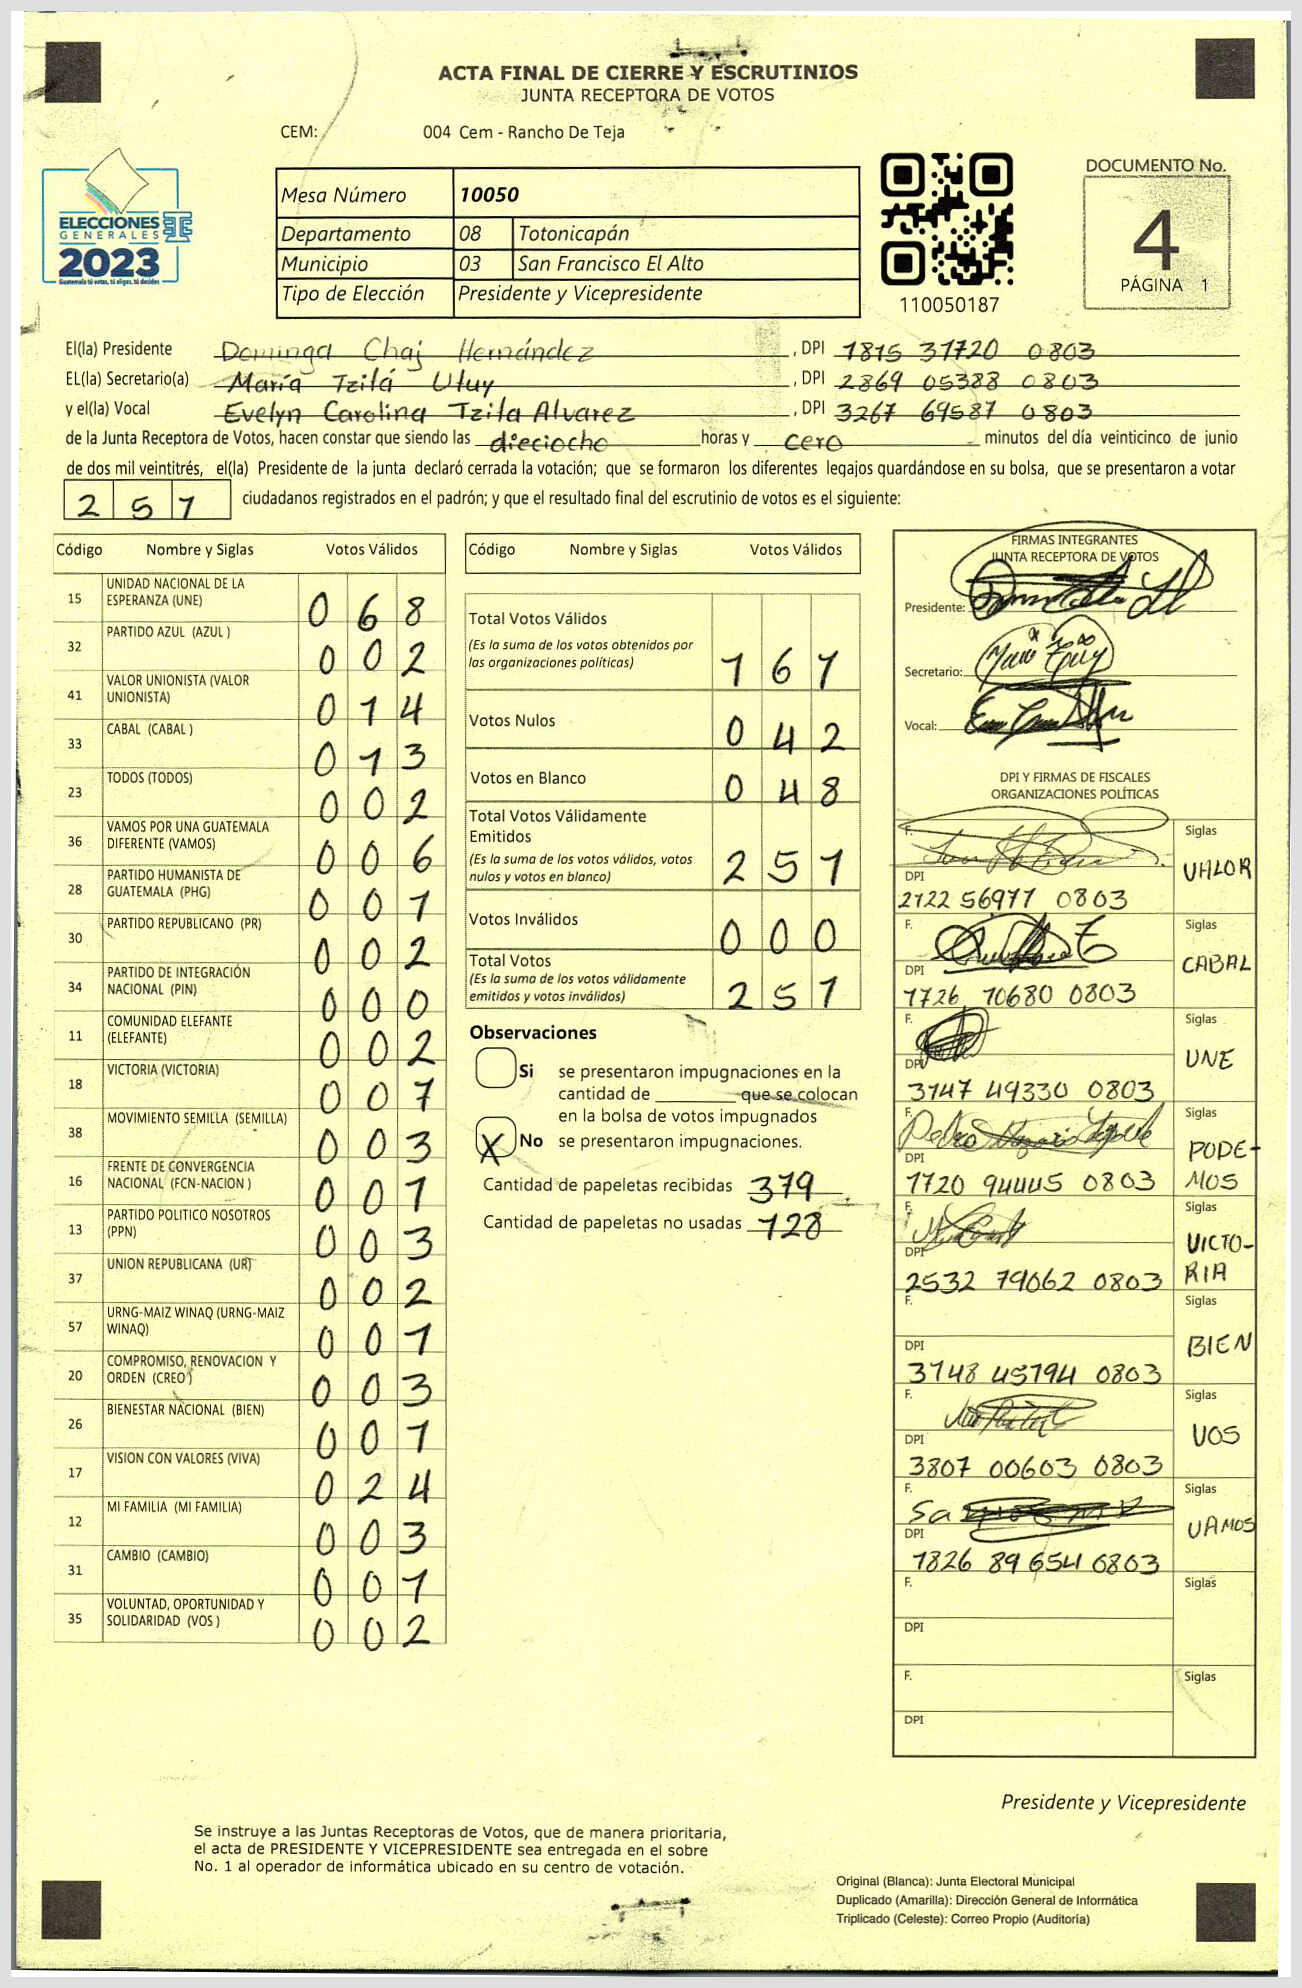 ACTA FINAL DE CIERRE Y ESCRUTINIOS
JUNTA RECEPTORA DE VOTOS
CEM: 004 Cem - Rancho De Teja
ELECCIONES
GENERALES
2023
Guatemala tú votas, tú eliges, tú decides
Mesa Número 10050
Departamento 08 Totonicapán
Municipio 03 San Francisco El Alto
Tipo de Elección Presidente y Vicepresidente
110050187
DOCUMENTO No.
4
PÁGINA 1
El(la) Presidente Dominga Chaj Hernández, DPI 1815 31720 0803
EL(la) Secretario(a) María Tzilá Utuy, DPI 2869 05388 0803
y el(la) Vocal Evelyn Carolina Tzila Alvarez, DPI 3267 69587 0803
de la Junta Receptora de Votos, hacen constar que siendo las dieciocho horas y cero minutos del día veinticinco de junio
de dos mil veintitrés, el(la) Presidente de la junta declaró cerrada la votación; que se formaron los diferentes legajos quardándose en su bolsa, que se presentaron a votar
251 ciudadanos registrados en el padrón; y que el resultado final del escrutinio de votos es el siguiente:
Código Nombre y Siglas Votos Válidos
15 UNIDAD NACIONAL DE LA ESPERANZA (UNE) 068
32 PARTIDO AZUL (AZUL ) 002
41 VALOR UNIONISTA (VALOR UNIONISTA) 014
33 CABAL (CABAL ) 013
23 TODOS (TODOS) 002
36 VAMOS POR UNA GUATEMALA DIFERENTE (VAMOS) 006
28 PARTIDO HUMANISTA DE GUATEMALA (PHG) 001
30 PARTIDO REPUBLICANO (PR) 002
34 PARTIDO DE INTEGRACIÓN NACIONAL (PIN) 000
11 COMUNIDAD ELEFANTE (ELEFANTE) 002
18 VICTORIA (VICTORIA) 007
38 MOVIMIENTO SEMILLA (SEMILLA) 003
16 FRENTE DE CONVERGENCIA NACIONAL (FCN-NACION ) 001
13 PARTIDO POLITICO NOSOTROS (PPN) 003
37 UNION REPUBLICANA (UR) 002
57 URNG-MAIZ WINAQ (URNG-MAIZ WINAQ) 001
20 COMPROMISO, RENOVACION Y ORDEN (CREO ) 003
26 BIENESTAR NACIONAL (BIEN) 001
17 VISION CON VALORES (VIVA) 024
12 MI FAMILIA (MI FAMILIA) 003
31 CAMBIO (CAMBIO) 001
35 VOLUNTAD, OPORTUNIDAD Y SOLIDARIDAD (VOS ) 002
Código Nombre y Siglas Votos Válidos
Total Votos Válidos
(Es la suma de los votos obtenidos por
las organizaciones políticas) 161
Votos Nulos 042
Votos en Blanco 048
Total Votos Válidamente
Emitidos
(Es la suma de los votos válidos, votos
nulos y votos en blanco) 251
Votos Inválidos 000
Total Votos
(Es la suma de los votos válidamente
emitidos y votos inválidos) 251
Observaciones
Si se presentaron impugnaciones en la
cantidad de ________ que se colocan
en la bolsa de votos impugnados
X No se presentaron impugnaciones.
Cantidad de papeletas recibidas 379
Cantidad de papeletas no usadas 128
FIRMAS INTEGRANTES
JUNTA RECEPTORA DE VOTOS
Presidente:
Secretario:
Vocal:
DPI Y FIRMAS DE FISCALES
ORGANIZACIONES POLÍTICAS
F. Siglas VALOR
DPI 2122 56977 0803
F. Siglas CABAL
DPI 1726 10680 0803
F. Siglas UNE
DPI 3147 49330 0803
F. Pedro Siglas PODE-
MOS
DPI 1720 94445 0803
F. Siglas VICTO-
RIA
DPI 2532 79062 0803
F. Siglas BIEN
DPI 3148 45194 0803
F. Siglas VOS
DPI 3807 00603 0803
F. Siglas VAMOS
DPI 1826 89654 0803
F. Siglas
DPI
F. Siglas
DPI
Presidente y Vicepresidente
Se instruye a las Juntas Receptoras de Votos, que de manera prioritaria,
el acta de PRESIDENTE Y VICEPRESIDENTE sea entregada en el sobre
No. 1 al operador de informática ubicado en su centro de votación.
Original (Blanca): Junta Electoral Municipal
Duplicado (Amarilla): Dirección General de Informática
Triplicado (Celeste): Correo Propio (Auditoría)